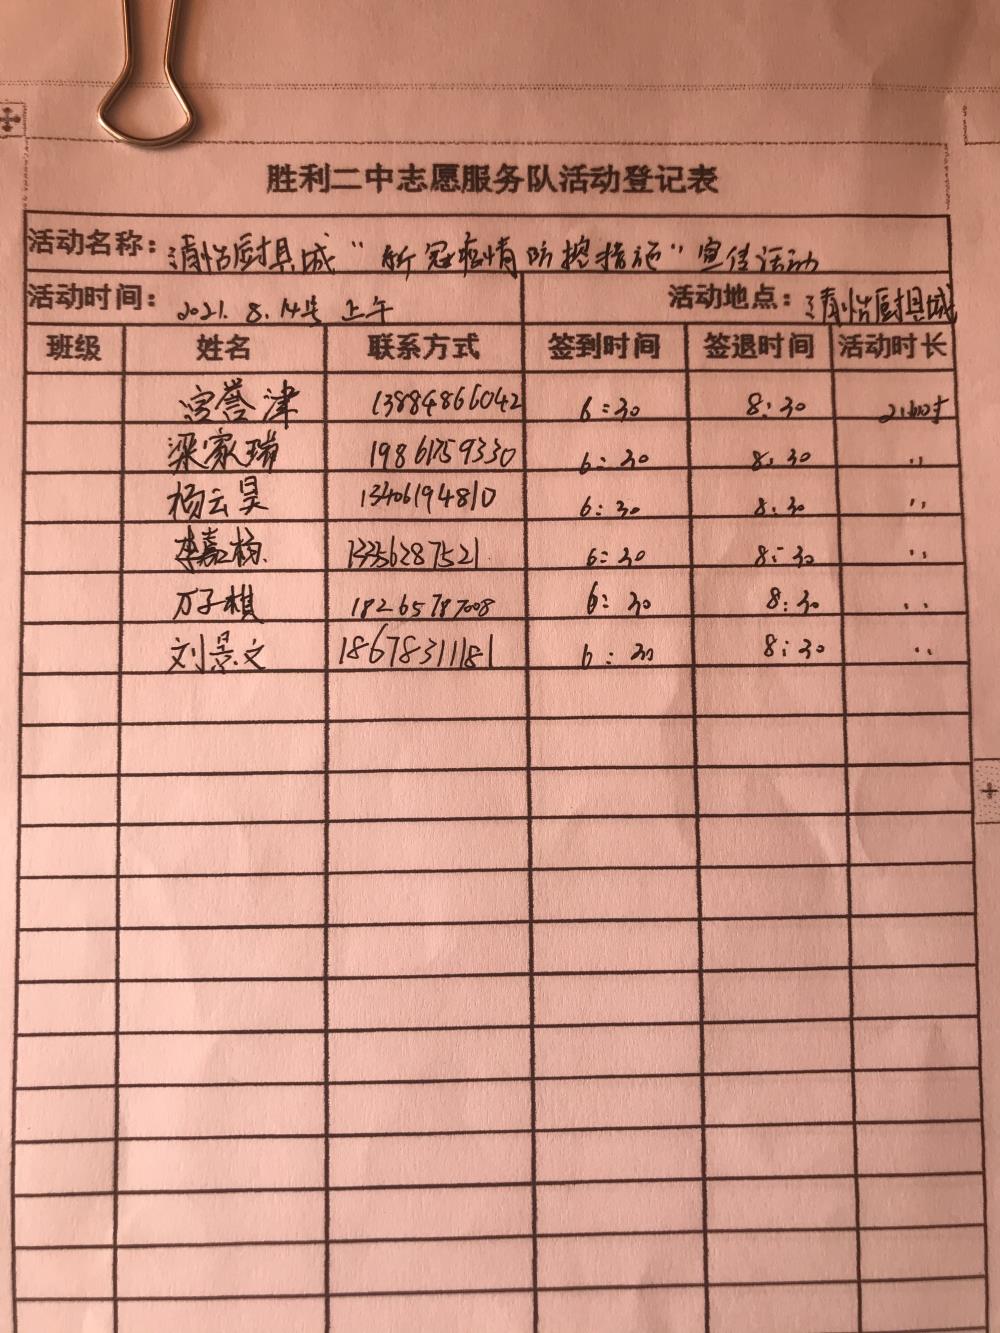 胜利二中志愿服务队活动登记表
活动名称：清怡厨具城“新冠疫情防控措施”宣传活动
活动时间：2021.8.14号 上午 活动地点：清怡厨具城
班级 姓名 联系方式 签到时间 签退时间 活动时长
宫誉津 13884866042 6:30 8:30 2小时
梁家瑞 19861759330 6:30 8:30 〃
杨云昊 13406194810 6:30 8:30 〃
李嘉杨 13356287521 6:30 8:30 〃
万子棋 18265787008 6:30 8:30 〃
刘景文 18678311181 6:30 8:30 〃